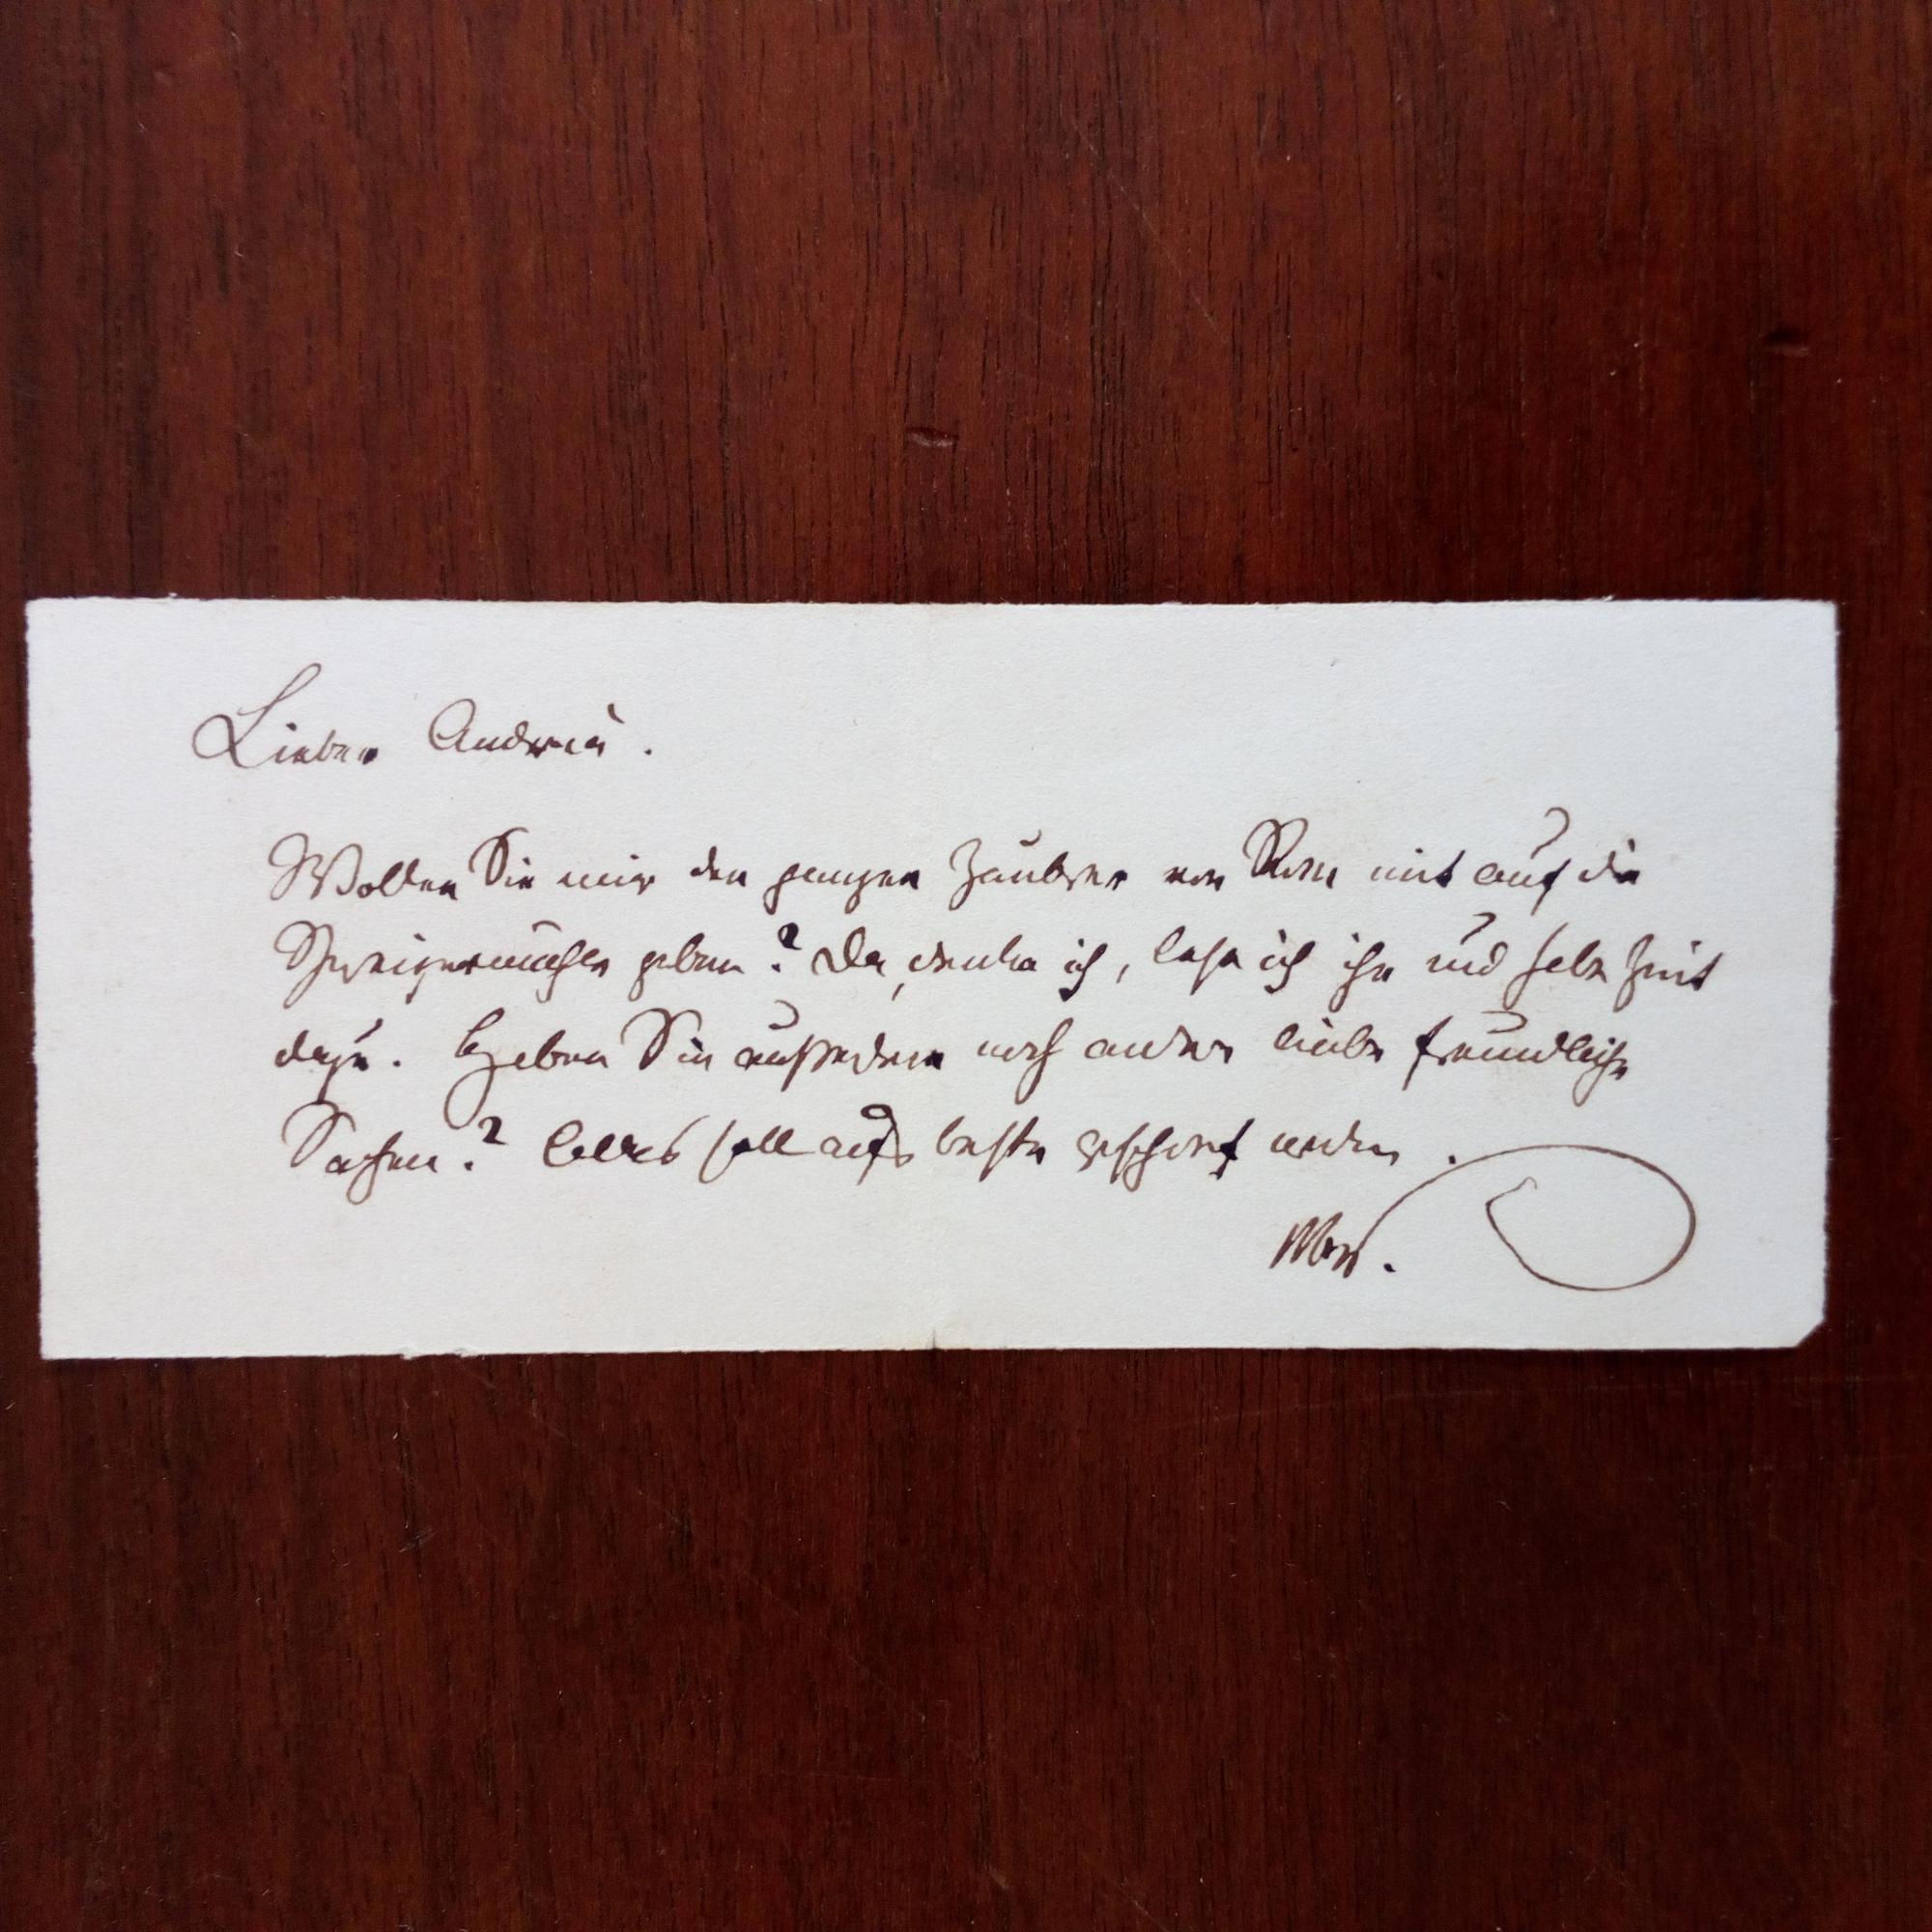 Lieber Andreä.
Wollen Sie mir den ganzen Zauber von Rom mit auf die
Schweizermühle geben? Da, denke ich, lese ich ihn und habe Zeit
dazu. Haben Sie außerdem noch andere liebe freundliche
Sachen? Alles soll aufs beste geschont werden.